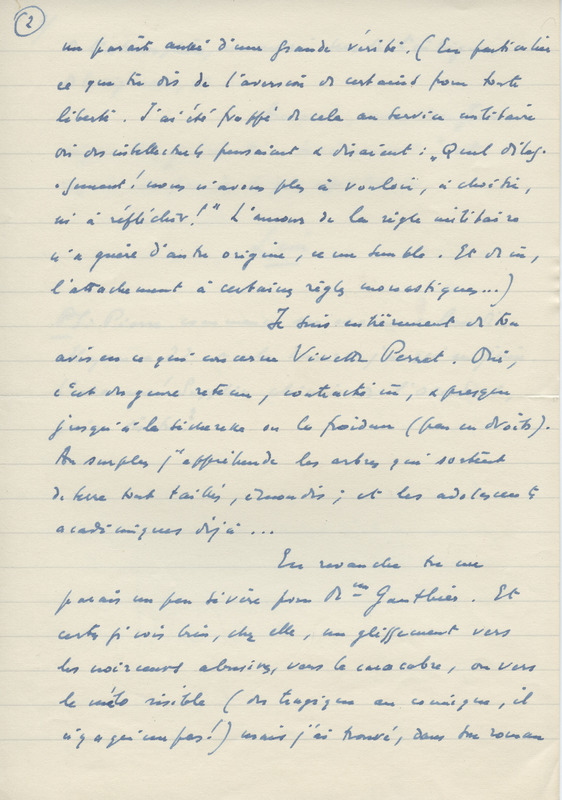 2
me paraît aussi d'une grande vérité. (En particulier
ce que tu dis de l'aversion de certains pour toute
liberté. J'ai été frappé de cela au service militaire
où des intellectuels pensaient & disaient : „Quel soulag-
-gement! nous n'avons plus à vouloir, à choisir,
ni à réfléchir!" L'amour de la règle militaire
n'a guère d'autre origine, ce me semble. Et même,
l'attachement à certaines règles monastiques...)
Je suis entièrement de ton
avis en ce qui concerne Vivette Perret. Oui,
c'est du genre retenu, contracté, & presque
jusqu'à la sécheresse ou la froideur (par endroits).
Au surplus j'appréhende les arbres qui sortent
de terre tout taillés, émondés ; et les adolescents
académiques déjà ...
En revanche tu me
parais un peu sévère pour Mme Gauthier. Et
certes je vois bien, chez elle, un glissement vers
les noirceurs abusives, vers le macabre, ou vers
le mélo risible (du tragique au comique, il
n'y a qu'un pas!) mais j'ai trouvé, dans son roman